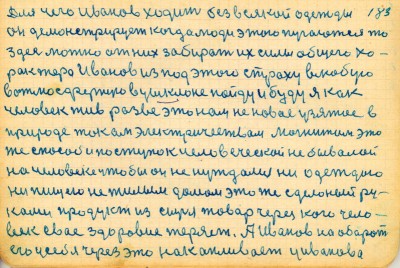 Для чего Иванов ходит без всякой одежды 183
он демонстрирует когда люди этого пугаются то
здес можно от них забират их силы общего ха-
рактера Иванов из под этого страху в любую
вотмосферную вушкломе пойду и буду я как
человек жив разве это нам не новае узятое в
природе током электричеством магнитом это
же способ и поступок человеческой не бывалой
на человеке чтобы он не нуждался ни одеждою
ни пищею не жилым домом это же сделоный ру-
ками продукт из сырия товар через кого чело-
век свае здоровие теряет. А Иванов на оборот
его усебя через это накапливает у иванова